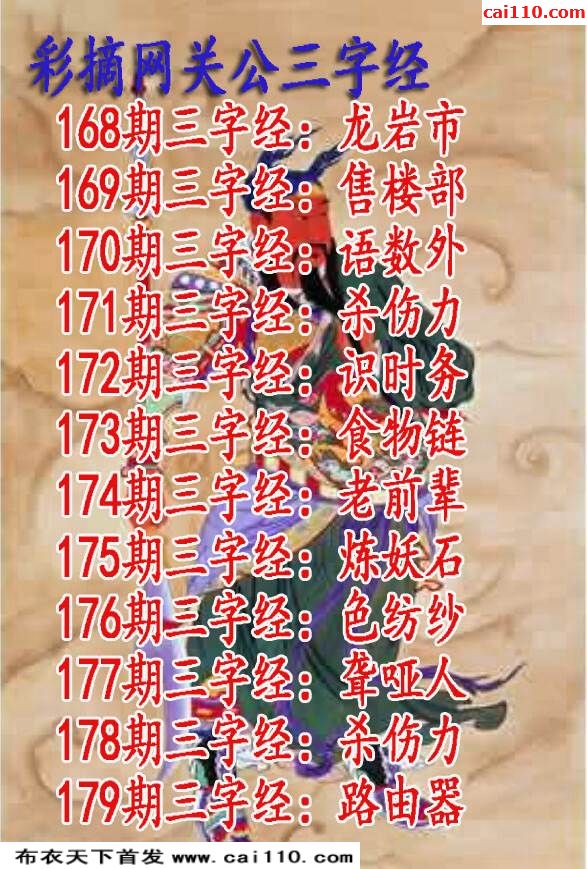 cai110.com
彩摘网关公三字经
168期三字经：龙岩市
169期三字经：售楼部
170期三字经：语数外
171期三字经：杀伤力
172期三字经：识时务
173期三字经：食物链
174期三字经：老前辈
175期三字经：炼妖石
176期三字经：色纺纱
177期三字经：聋哑人
178期三字经：杀伤力
179期三字经：路由器
布衣天下首发 www.cai110.com